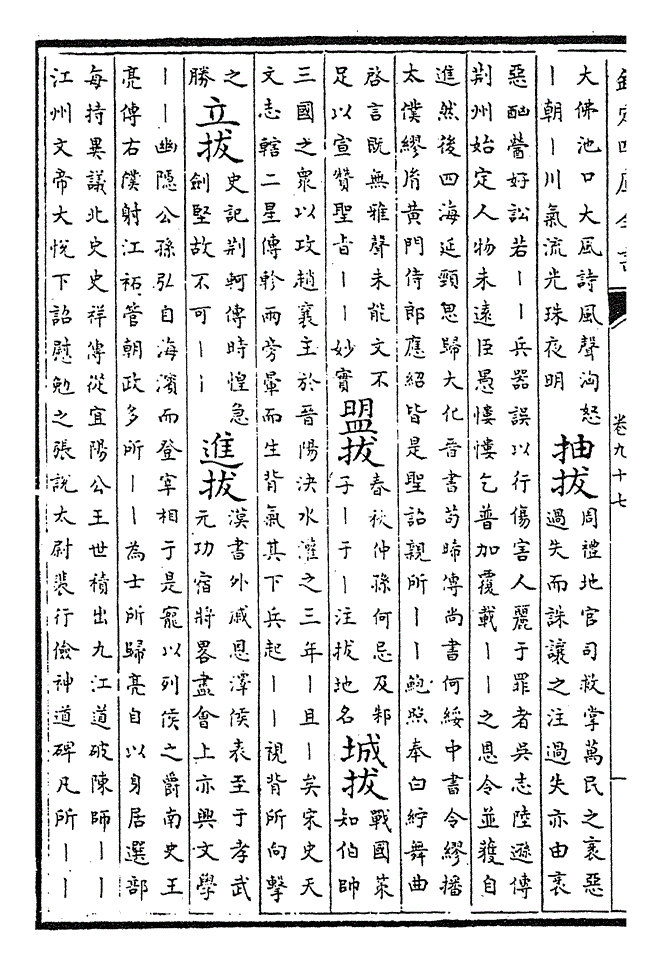 欽定四庫全書
卷九十七
大佛池口大風詩風聲洶怒
丨朝丨川氣流光珠夜明
抽拔
周禮地官司救掌萬民之衺惡
過失而誅讓之注過失亦由衺
惡酗醟好訟若丨丨兵器誤以行傷害人麗于罪者吳志陸遜傳
荆州始定人物未遠臣愚慺慺乞普加覆載丨丨之恩令並獲自
進然後四海延頸思歸大化晉書荀晞傳尚書何綏中書令繆播
太僕繆胤黃門侍郎應紹皆是聖詔親所丨丨鮑照奉白紵舞曲
啓言既無雅聲未能文不
足以宣贊聖旨丨丨妙實
盟拔
春秋仲孫何忌及邾
子丨于丨注拔地名
城拔
戰國策
知伯帥
三國之衆以攻趙襄主於晉陽決水灌之三年丨且丨矣宋史天
文志轄二星傅軫兩旁暈而生背氣其下兵起丨丨視背所向擊
之
勝
立拔
史記荆軻傳時惶急
劍堅故不可丨丨
進拔
漢書外戚恩澤侯表至于孝武
元功宿將畧盡會上亦興文學
丨丨幽隱公孫弘自海濱而登宰相于是寵以列侯之爵南史王
亮傳右僕射江祏管朝政多所丨丨為士所歸亮自以身居選部
每持異議北史史祥傳從宜陽公王世積出九江道破陳師丨丨
江州文帝大悅下詔慰勉之張說太尉裴行儉神道碑凡所丨丨